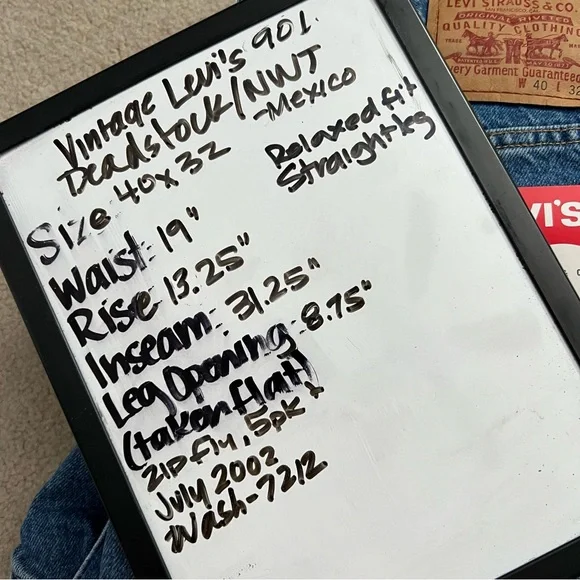 Vintage Levi's 901
Deadstock/NWT
-Mexico
Relaxed fit
Straight leg
Size: 40x32
Waist: 19"
Rise: 13.25"
Inseam: 31.25"
Leg Opening: 8.75"
(taken flat)
zip fly, 5pkt
July 2002
Wash-7212
LEVI STRAUSS & CO.
ORIGINAL RIVETED
QUALITY CLOTHING
very Garment Guarantee
W 40 L 32
VI'S